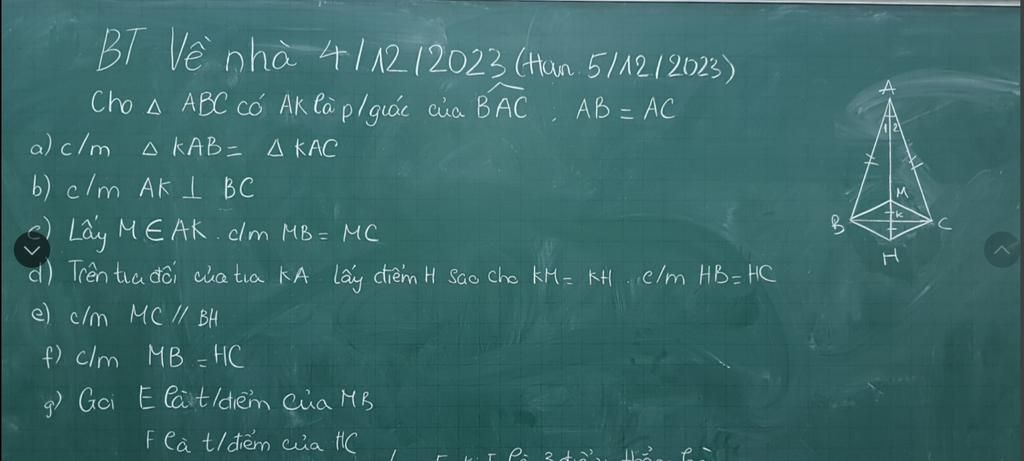 BT Về nhà 4/12/2023 (Hạn 5/12/2023)
Cho △ ABC có AK là p/giác của BAC ; AB = AC
a) c/m △ KAB = △ KAC
b) c/m AK ⊥ BC
c) Lấy M ∈ AK. c/m MB = MC
d) Trên tia đối của tia KA lấy điểm H sao cho KM = KH. c/m HB = HC
e) c/m MC // BH
f) c/m MB = HC
g) Gọi E là t/điểm của MB
F là t/điểm của HC
A
1 2
M
B K C
H